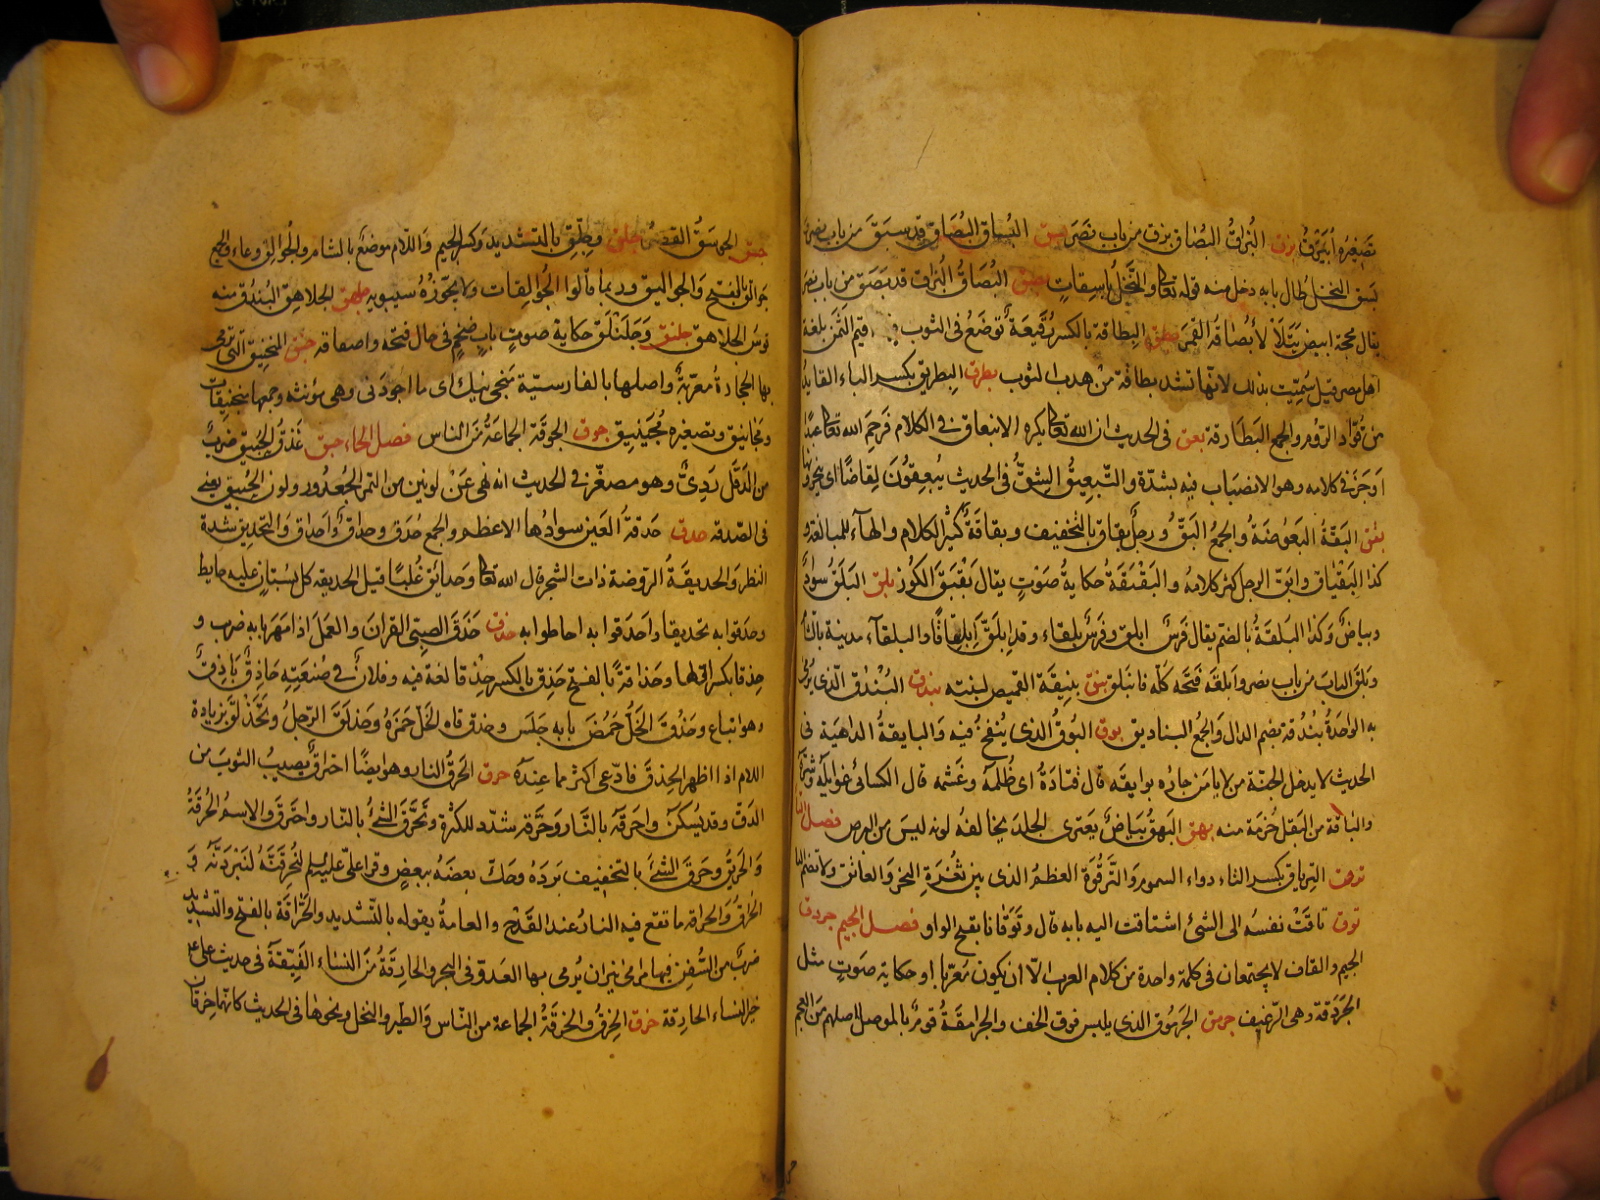 تصغيره أبيرق بزق البزاق البصاق بزق من باب نصر بسق البساق البصاق وقد بسق من باب نصر
بسق النخل طال بابه دخل منه قوله تعا والنخل باسقات بصق البصاق البزاق قد بصق من باب نصر
يقال لحجر ابيض يتلألأ بصاقة القمر بطق البطاقة بالكسر رقيعة توضع فى الثوب فيها رقم الثمن بلغة
اهل مصر قيل سميت بذلك لانها تشد بطاقة من هدب الثوب بطرق البطريق بكسر الباء القايد
من قواد الروم والجمع البطارقة بعق فى الحديث ان الله تعا يكره الانبعاق فى الكلام فرحم الله تعا عبدا
اوجز فى كلامه وهو الانصباب فيه بشدة والتبعيق الشق فى الحديث يبعقون لقاضا اى ينحرونها
بقق البقة البعوضة والجمع البق ورجل بقاق بالتخفيف وبقاقة كثير الكلام والهاء للمبالغة و
كذا البقباق وابق الرجل كثر كلامه والبقبقة حكاية صوت يقال بقبق الكوز بلق البلق سواد
وبياض وكذا البلقة بالضم يقال فرس ابلق وفرس بلقاء وقد ابلق ابلقاقا والبلقاء مدينة بالشام
وبلق الباب من باب نصر وابلقه فتحه كله فانبلق بنق بنيقة القميص لبنته بندق البندق الذى يرمى
به الواحدة بندقة بضم الدال والجمع البناديق بوق البوق الذى ينفخ فيه والبايقة الداهية فى
الحديث لا يدخل الجنة من لا يامن جاره بوايقه قال قتادة اى ظلمه وغشمه قال الكسائى غوايله وشره
والباقة من البقل حزمة منه بهق البهق بياض يعترى الجلد يخالف لونه ليس من البرص فصل التا
ترق الترياق بكسر التاء دواء السموم والترقوة العظم الذى بين ثغرة النحر والعاتق ولا تضم التا
توق تاقت نفسه الى الشئ اشتاقت اليه بابه قال وتوقانا بفتح الواو فصل الجيم جردق
الجيم والقاف لا يجتمعان فى كلمة واحدة من كلام العرب الا ان يكون معربا او حكاية صوت مثل
الجردقة وهى الرغيف جرمق الجرموق الذى يلبس فوق الخف والجرامقة قوم بالموصل اصلهم من العجم
جسق الجوسق القصر جلق وجلق بالتشديد وكسر الجيم واللام موضع بالشام والجوالق وعاء والجمع
جوالق بالفتح والجواليق وربما قالوا الجوالقات ولا يجوزه سيبويه جلهق الجلاهق البندق منه
قوس الجلاهق جلنق وجلنبلق حكاية صوت باب ضخم فى حال فتحه واصفاقه جنق المنجنيق التى ترمى
بها الحجارة معربة واصلها بالفارسية من جى نيك اى ما اجودنى وهى مؤنثة وجمعها منجنيقات
ومجانيق وتصغيره مجينيق جوق الجوقة الجماعة من الناس فصل الحاء حبق عذق الحبيق ضرب
من الدقل ردى وهو مصغر فى الحديث انه نهى عن لونين من التمر الجعرور ولون الحبيق يعنى
فى الصدقة حدق حدقة العين سوادها الاعظم والجمع حدق وحداق واحداق والتحديق شدة
النظر والحديقة الروضة ذات الشجر قال الله تعا وحدايق غلبا قيل الحديقة كل بستان عليه حايط
وحدقوا به تحديقا واحدقوا به احاطوا به حذق حذق الصبى القران والعمل اذا مهر بابه ضرب و
حذقا بكسر الحا وحذاقة بالفتح حذق بالكسر حذقا لغة فيه وفلان فى صنعته حاذق باذق
وهو اتباع وحذق الخل حمض بابه جلس وحذق فاه الخل حمزه وحذلق الرجل وتحذلق بزيادة
اللام اذا اظهر الحذق فادعى اكثر مما عنده حرق الحرق النار وهو ايضا احتراق يصيب الثوب من
الدق وقد يسكن واحرقه بالنار وحرقه شدد للكثرة وتحرق الشئ بالنار واحترق والاسم الحرقة
والحريق وحرق الشئ بالتخفيف برده وحك بعضه ببعض وقرا على عليه لم لنحرقنه لنبردنه و
الحراق والحراقة ما تقع فيه النار عند القدح والعامة يقوله بالتشديد والحراقة بالفتح والتشديد
ضرب من السفن فيها مرامى نيران يرمى بها العدو فى البحر والحارقة من النساء الضيقة فى حديث على
خير النساء الحارقة حزق الحزق والحزقة الجماعة من الناس والطير والنخل ونحوها فى الحديث كانهما حزقان